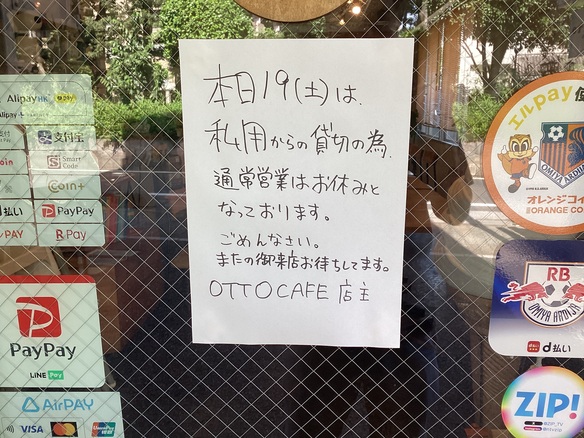 本日19(土)は、
私用からの貸切の為、
通常営業はお休みと
なっております。
ごめんなさい。
またの御来店お待ちしてます。
OTTO CAFE 店主
AlipayHK
支付宝
Smart Code
Coin+
d払い
PayPay
R Pay
PayPay
LINE Pay
AirPAY
VISA
mastercard
UnionPay
エルpay
OMIYA ARDIJA
オレンジコイ
ORANGE CO
RB
OMIYA ARDIJA
d払い
ZIP!